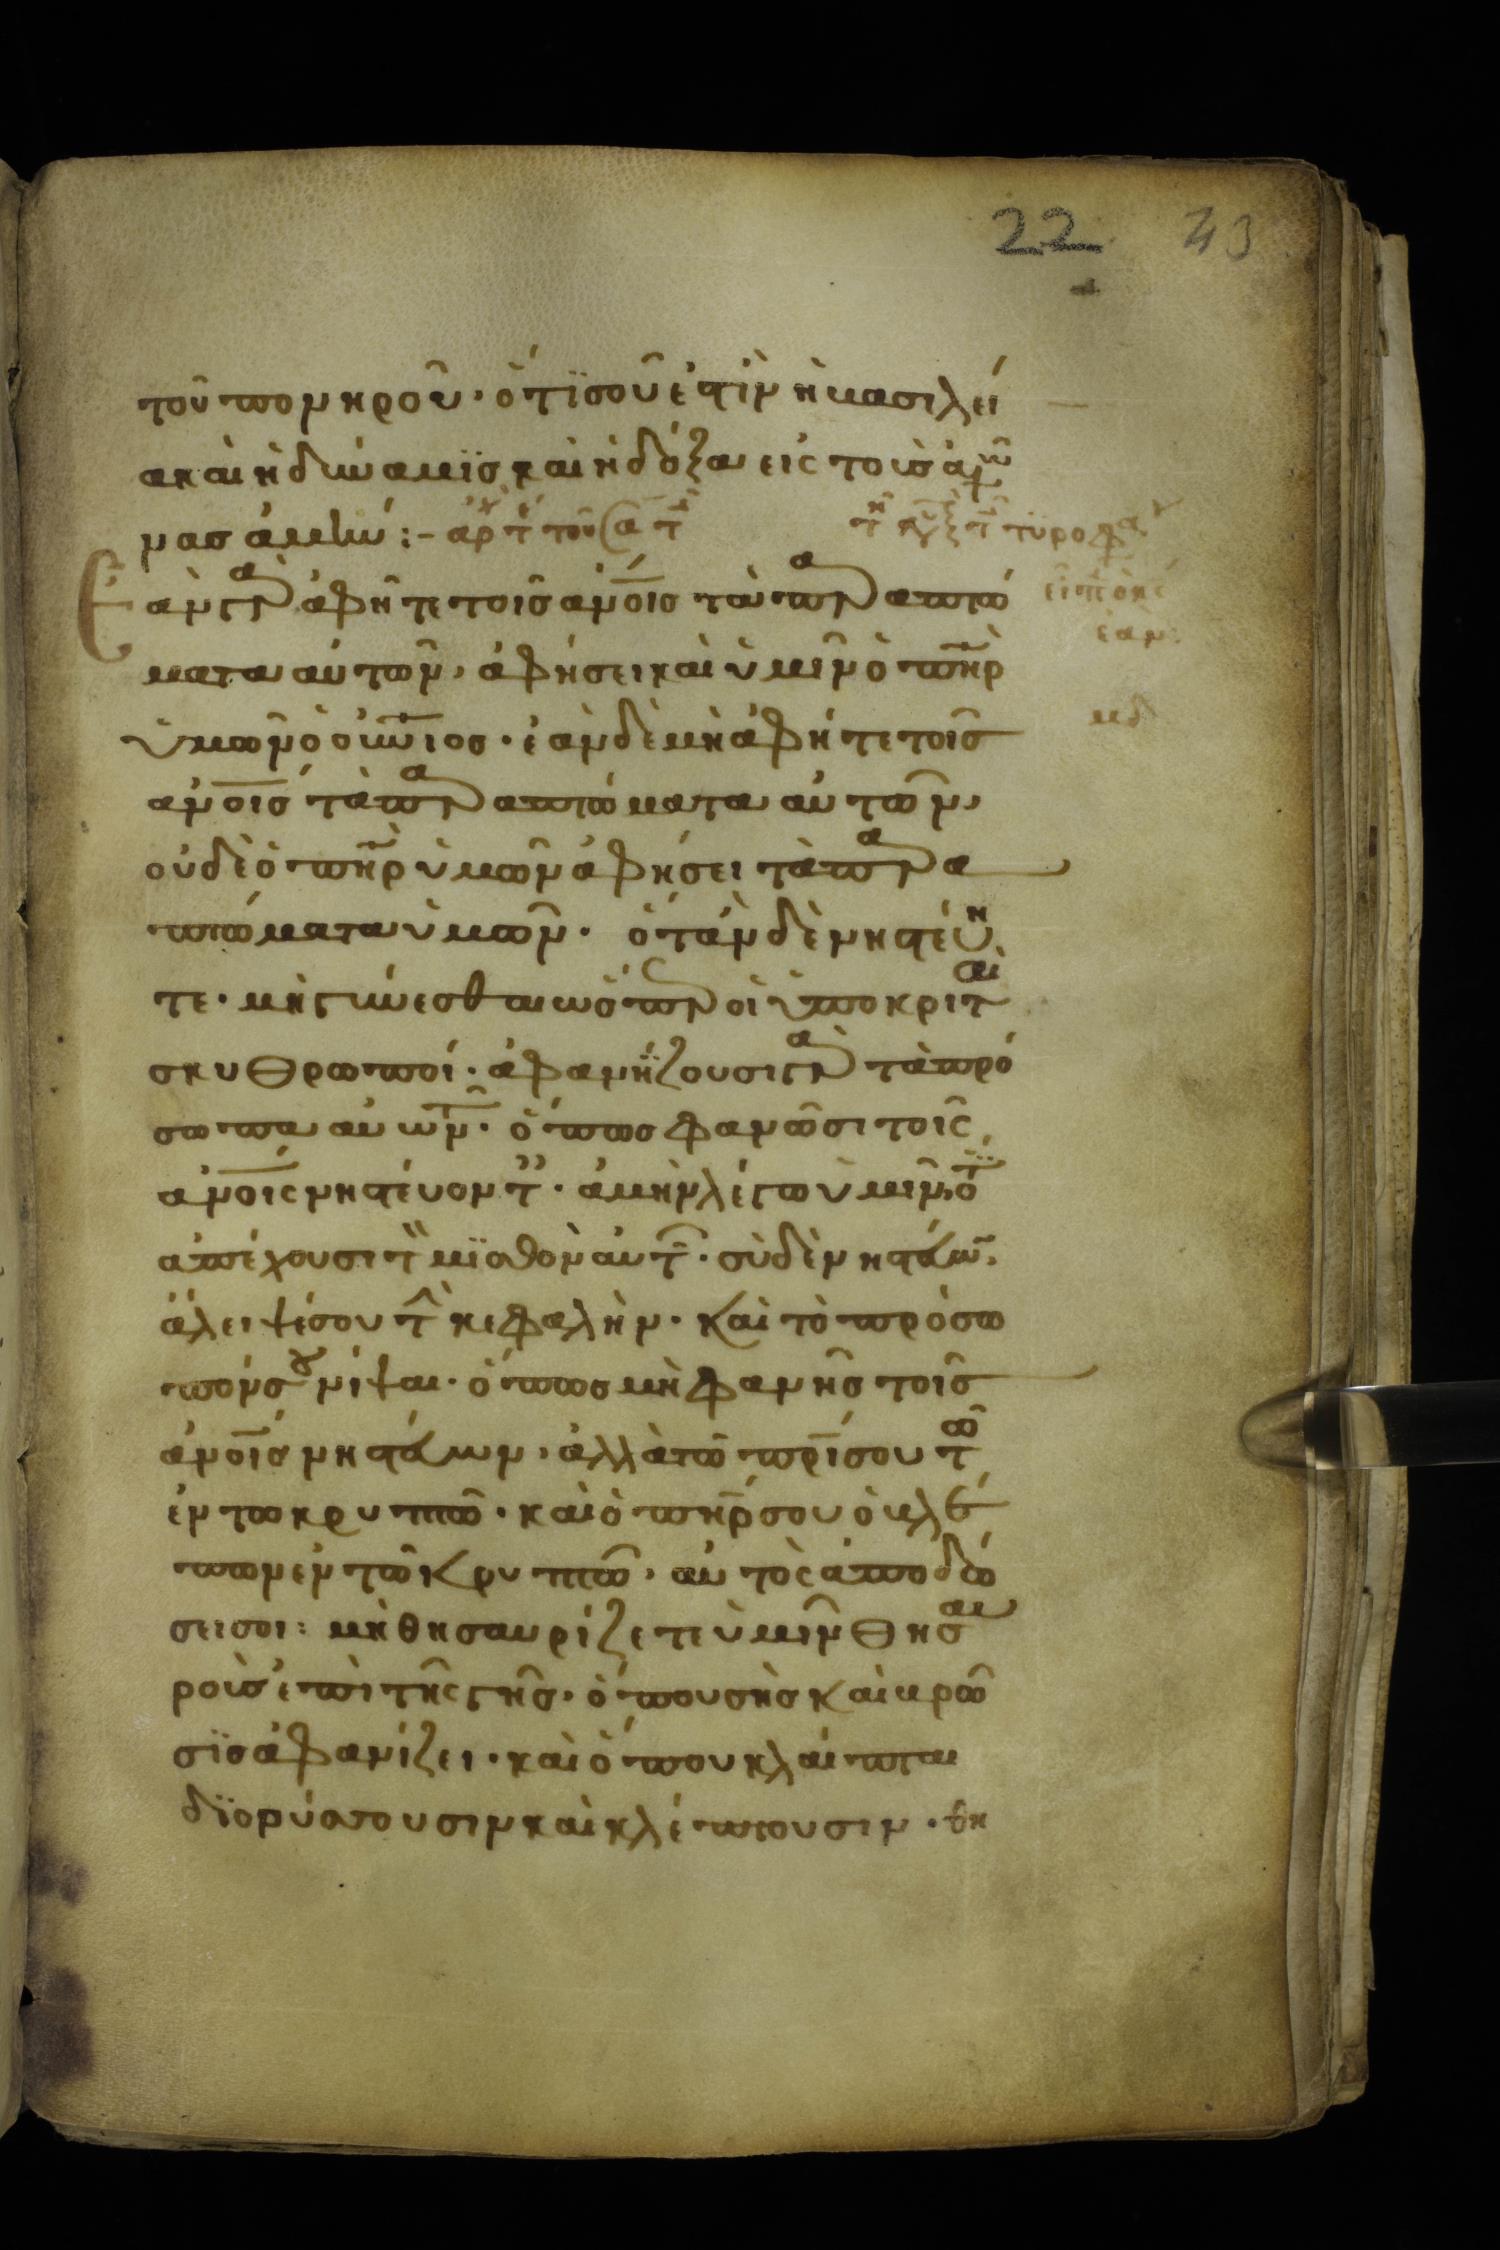 22 43
τοῦ πονηροῦ· ὅτι σοῦ ἐστὶν ἡ βασιλεί
α καὶ ἡ δύναμις καὶ ἡ δόξα εἰς τοὺς αἰῶ
νας ἀμήν:-
Ἐὰν γὰρ ἀφῆτε τοῖς ἀνοις τὰ παραπτώ
ματα αὐτῶν, ἀφήσει καὶ ὑμῖν ὁ πηρ
ὑμῶν ὁ οὐνιος· ἐὰν δὲ μὴ ἀφῆτε τοῖς
ἀνοις τὰ παραπτώματα αὐτῶν,
οὐδὲ ὁ πηρ ὑμῶν ἀφήσει τὰ παρα
πτώματα ὑμῶν· ὅταν δὲ νηστεύη
τε· μὴ γίνεσθαι ὥσπερ οἱ ὑποκριταὶ
σκυθρωποί· ἀφανήζουσι γὰρ τὰ πρό
σωπα αὐτων· ὅπως φανῶσι τοῖς
ἀνοις νηστεύοντες· ἀμὴν λέγω ὑμῖν, ὅτι
ἀπέχουσι τὸν μισθὸν αὐτῶν· σὺ δὲ νηστεύων,
ἄλειψέ σου τὴν κεφαλήν· καὶ τὸ πρόσω
πόν σου νίψαι· ὅπως μὴ φανῆς τοῖς
ἀνοις νηστεύων, ἀλλὰ τῶ πρι σου τῶ
ἐν τω κρυπτῶ· καὶ ὁ πηρ σου ὁ βλέ
πων ἐν τῶ κρυπτῶ, αὐτὸς ἀποδώ
σει σοι: μὴ θησαυρίζετε ὑμῖν θησαυ
ροὺς ἐπὶ τῆς γῆς· ὅπου σὴς καὶ βρῶ
σις ἀφανίζει· καὶ ὅπου κλέπται
διορύσσουσιν καὶ κλέπτουσιν· θη